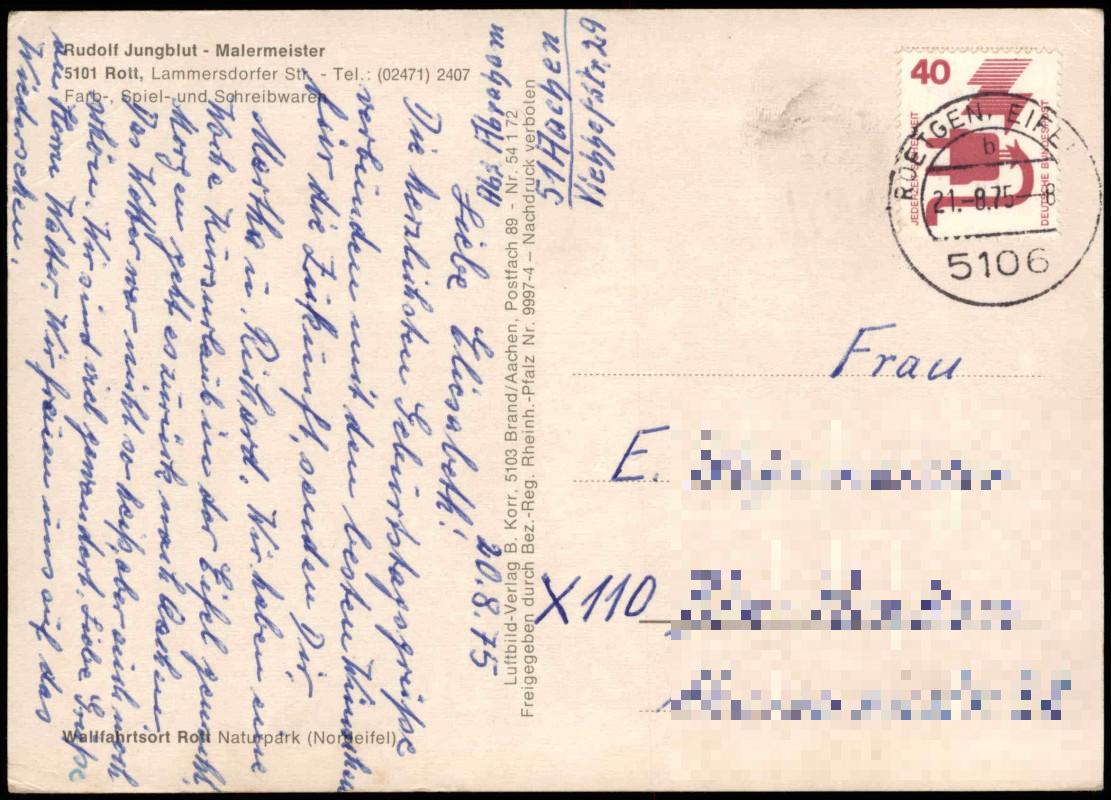 Rudolf Jungblut - Malermeister
5101 Rott, Lammersdorfer Str. - Tel.: (02471) 2407
Farb-, Spiel- und Schreibwaren
51 Aachen
20.8.75
Liebe Elisabeth!
Die herzlichsten Geburtstagsgrüße
verbinden mit den besten Wünschen
für die Zukunft, senden Dir
Martha u. Richard. Wir haben eine
Woche Kurzurlaub in der Eifel gemacht
Morgen geht es zurück nach Aachen
Das Wetter war nicht so heiß, aber auch noch
schön. Wir sind viel gewandert. Liebe Grüße
an Herrn Walter. Wir freuen uns auf das
Wiedersehen.
Wallfahrtsort Rott Naturpark (Nordeifel)
Luftbild-Verlag B. Korr, 5103 Brand/Aachen, Postfach 89 - Nr. 54 1 72
Freigegeben durch Bez.-Reg. Rheinh.-Pfalz Nr. 9997-4 – Nachdruck verboten
40
JEDERZEIT SICHERHEIT
DEUTSCHE BUNDESPOST
ROETGEN, EIFEL
b
21.-8.75-8
5106
Frau
E.
X110